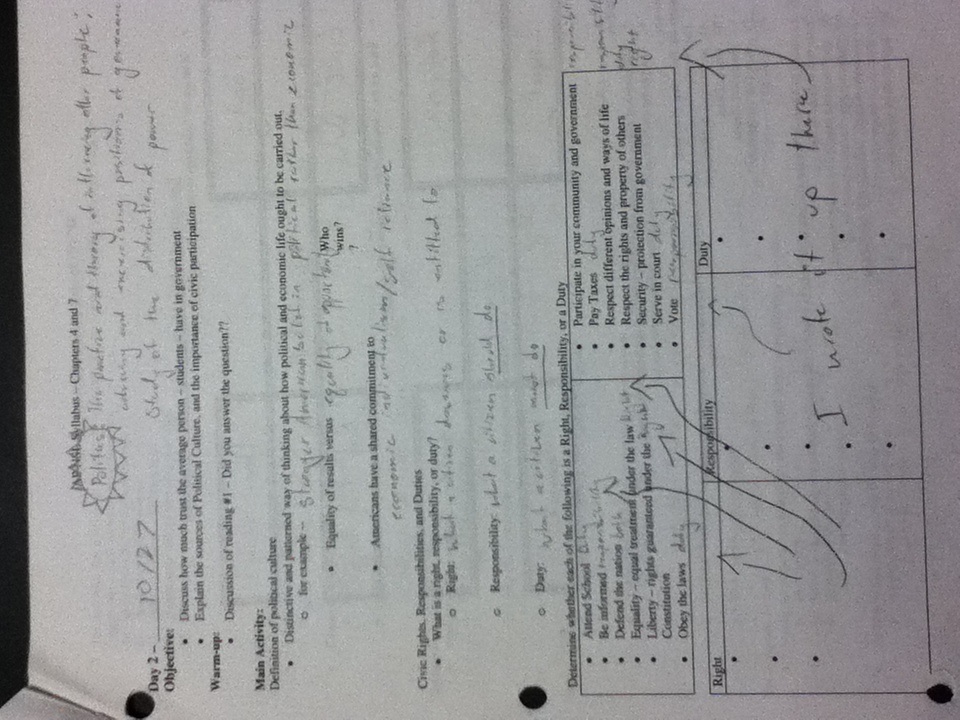 AP NSL Syllabus – Chapters 4 and 7
Politics: The practice and theory of influencing other people;
achieving and exercising positions of governance
Study of the distribution of power
Day 2 – 10/27
Objective:
• Discuss how much trust the average person – students – have in government
• Explain the sources of Political Culture, and the importance of civic participation
Warm-up:
• Discussion of reading #1 – Did you answer the question??
Main Activity:
Definition of political culture
• Distinctive and patterned way of thinking about how political and economic life ought to be carried out.
o for example – stronger American belief in political rather than economic
• Equality of results versus equality of opportunity Who
wins?
?
• Americans have a shared commitment to
economic individualism/self reliance
Civic Rights, Responsibilities, and Duties
• What is a right, responsibility, or duty?
o Right: what a citizen deserves or is entitled to
o Responsibility: what a citizen should do
o Duty: what a citizen must do
Determine whether each of the following is a Right, Responsibility, or a Duty
• Attend School Duty
• Be informed responsibility
• Defend the nation both
• Equality – equal treatment under the law Right
• Liberty – rights guaranteed under the Right
Constitution
• Obey the laws duty
• Participate in your community and government responsibili
• Pay Taxes duty
• Respect different opinions and ways of life responsibili
• Respect the rights and property of others duty
• Security – protection from government right
• Serve in court duty
• Vote Responsibility
Right Responsibility Duty
I wrote it up there